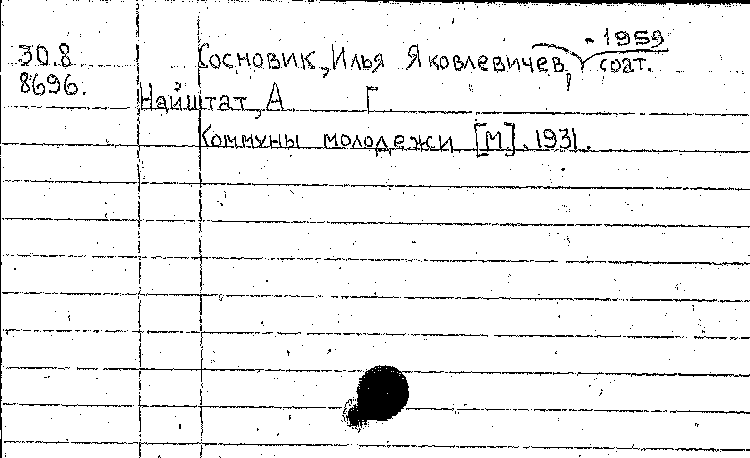 - 1959
30.8 Сосновик, Илья Яковлевичев, соат.
8696.
Найштат, А Г
Коммуны молодежи [М]. 1931.